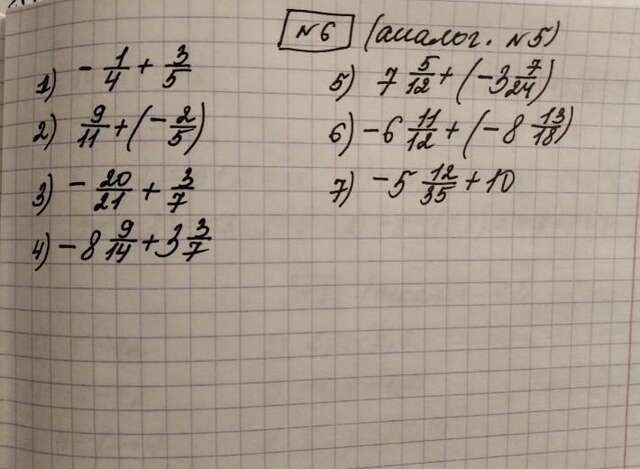 №6 (аналог. №5)
1) -1/4 + 3/5
2) 9/11 + (-2/5)
3) -20/21 + 3/7
4) -8 9/14 + 3 3/7
5) 7 5/12 + (-3 7/24)
6) -6 11/12 + (-8 13/18)
7) -5 12/35 + 10